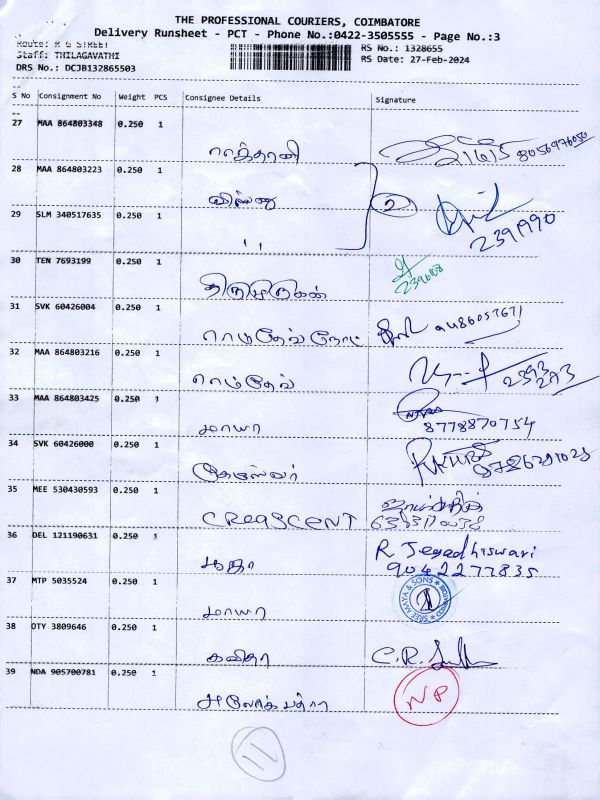 THE PROFESSIONAL COURIERS, COIMBATORE
Delivery Runsheet - PCT - Phone No.:0422-3505555 - Page No.:3
Route: R G STREET
Staff: THILAGAVATHI
DRS No.: DCJB132865503
RS No.: 1328655
RS Date: 27-Feb-2024
S No Consignment No Weight PCS Consignee Details Signature
27 MAA 864803348 0.250 1
8056976050
28 MAA 864803223 0.250 1
விஷ்ணு 2
29 SLM 340517635 0.250 1
" 2391990
30 TEN 7693199 0.250 1
திருமுருகன்
31 SVK 60426004 0.250 1
32 MAA 864803216 0.250 1
ராம்தேவ்
33 MAA 864803425 0.250 1
மாயா 8778870754
34 SVK 60426000 0.250 1
35 MEE 530430593 0.250 1
CREASCENT
36 DEL 121190631 0.250 1
R Jegadhiswari
9042277835
37 MTP 5035524 0.250 1
மாயா SREE MAYA & SONS
38 OTY 3809646 0.250 1
கவிதா C.R.
39 NDA 905700781 0.250 1
NP
11